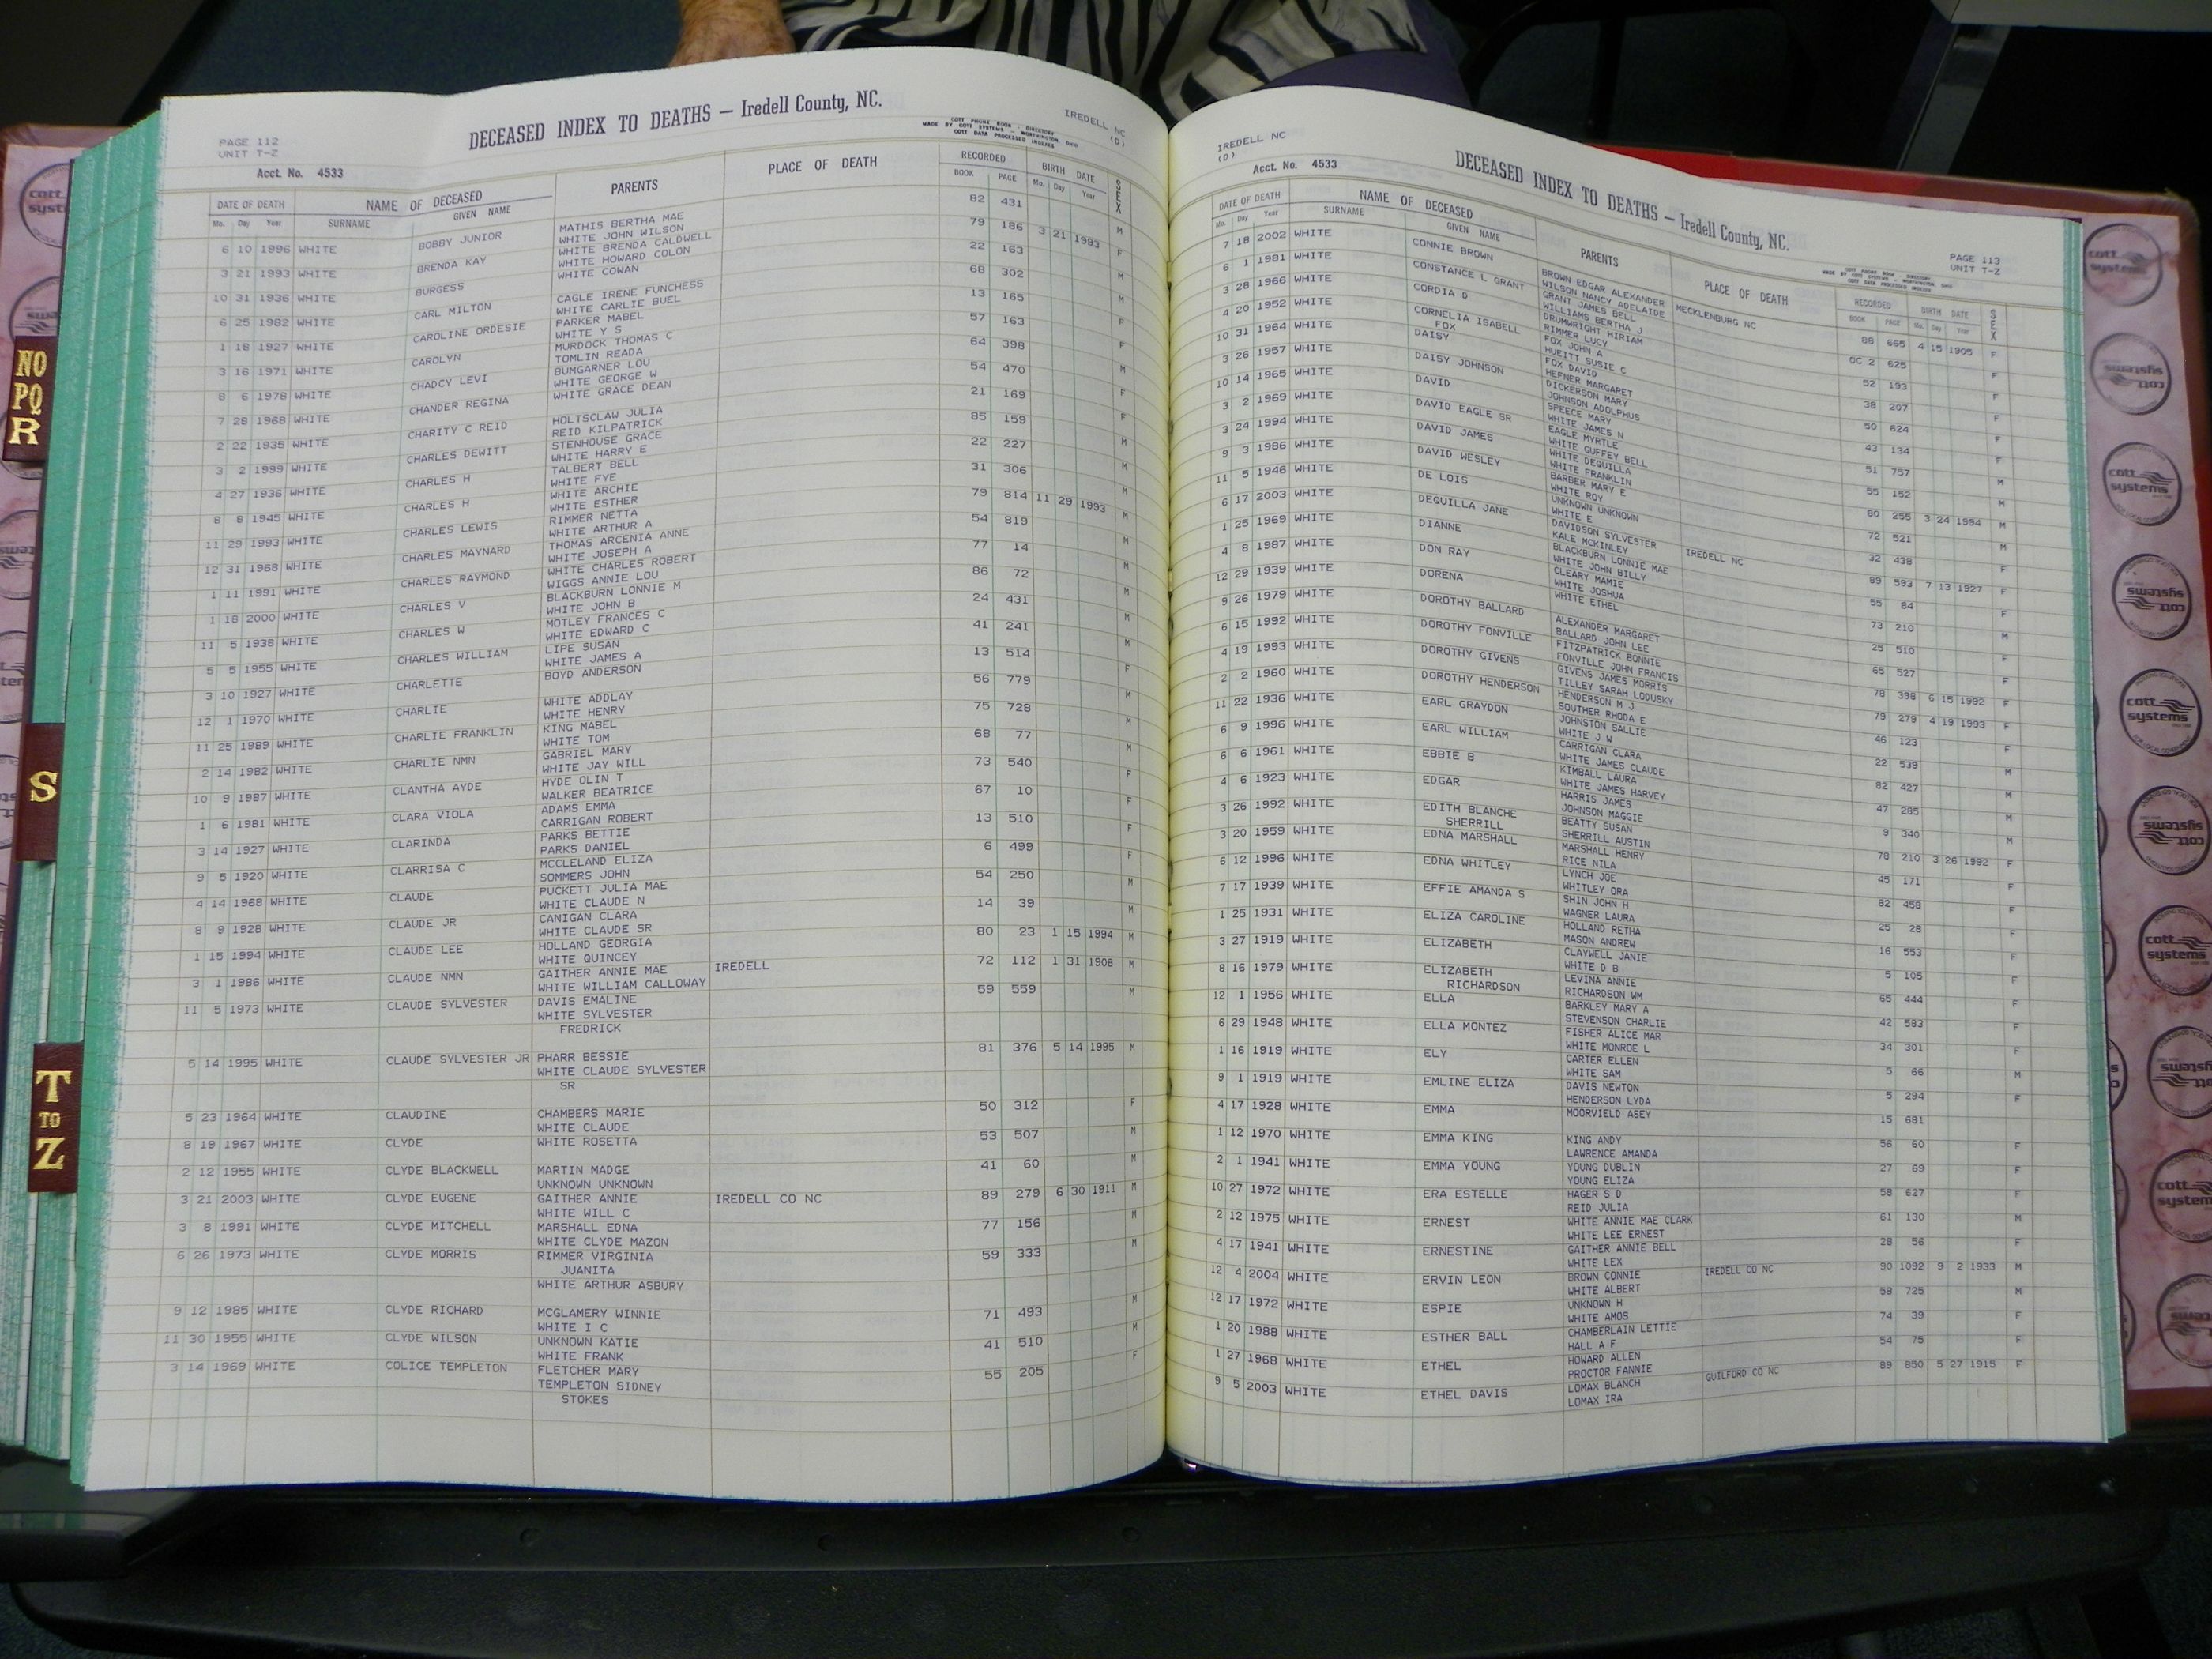 PAGE 112
UNIT T-Z
DECEASED INDEX TO DEATHS — Iredell County, NC.
COTT PHONE BOOK - DIRECTORY
MADE BY COTT SYSTEMS - WORTHINGTON, OHIO
COTT DATA PROCESSED INDEXES
IREDELL NC
(D)
Acct. No. 4533
DATE OF DEATH NAME OF DECEASED PARENTS PLACE OF DEATH RECORDED BIRTH DATE SEX
Mo. Day Year SURNAME GIVEN NAME BOOK PAGE Mo. Day Year
6 10 1996 WHITE BOBBY JUNIOR MATHIS BERTHA MAE 82 431 M
WHITE JOHN WILSON
3 21 1993 WHITE BRENDA KAY WHITE BRENDA CALDWELL 79 186 3 21 1993 F
WHITE HOWARD COLON
10 31 1936 WHITE BURGESS WHITE COWAN 22 163 M
6 25 1982 WHITE CARL MILTON CAGLE IRENE FUNCHESS 68 302 M
WHITE CARLIE BUEL
1 18 1927 WHITE CAROLINE ORDESIE PARKER MABEL 13 165 F
WHITE Y S
3 16 1971 WHITE CAROLYN MURDOCK THOMAS C 57 163 F
TOMLIN READA
8 6 1978 WHITE CHADCY LEVI BUMGARNER LOU 64 398 M
WHITE GEORGE W
7 28 1968 WHITE CHANDER REGINA WHITE GRACE DEAN 54 470 F
2 22 1935 WHITE CHARITY C REID HOLTSCLAW JULIA 21 169 F
REID KILPATRICK
3 2 1999 WHITE CHARLES DEWITT STENHOUSE GRACE 85 159 M
WHITE HARRY E
4 27 1936 WHITE CHARLES H TALBERT BELL 22 227 M
WHITE FYE
8 8 1945 WHITE CHARLES H WHITE ARCHIE 31 306 M
WHITE ESTHER
11 29 1993 WHITE CHARLES LEWIS RIMMER NETTA 79 814 11 29 1993 M
WHITE ARTHUR A
12 31 1968 WHITE CHARLES MAYNARD THOMAS ARCENIA ANNE 54 819 M
WHITE JOSEPH A
1 11 1991 WHITE CHARLES RAYMOND WHITE CHARLES ROBERT 77 14 M
WIGGS ANNIE LOU
1 18 2000 WHITE CHARLES V BLACKBURN LONNIE M 86 72 M
WHITE JOHN B
11 5 1938 WHITE CHARLES W MOTLEY FRANCES C 24 431 M
WHITE EDWARD C
5 5 1955 WHITE CHARLES WILLIAM LIPE SUSAN 41 241 M
WHITE JAMES A
3 10 1927 WHITE CHARLETTE BOYD ANDERSON 13 514 F
12 1 1970 WHITE CHARLIE WHITE ADDLAY 56 779 M
WHITE HENRY
11 25 1989 WHITE CHARLIE FRANKLIN KING MABEL 75 728 M
WHITE TOM
2 14 1982 WHITE CHARLIE NMN GABRIEL MARY 68 77 M
WHITE JAY WILL
10 9 1987 WHITE CLANTHA AYDE HYDE OLIN T 73 540 F
WALKER BEATRICE
1 6 1981 WHITE CLARA VIOLA ADAMS EMMA 67 10 F
CARRIGAN ROBERT
3 14 1927 WHITE CLARINDA PARKS BETTIE 13 510 F
PARKS DANIEL
9 5 1920 WHITE CLARRISA C MCCLELAND ELIZA 6 499 F
SOMMERS JOHN
4 14 1968 WHITE CLAUDE PUCKETT JULIA MAE 54 250 M
WHITE CLAUDE N
8 9 1928 WHITE CLAUDE JR CANIGAN CLARA 14 39 M
WHITE CLAUDE SR
1 15 1994 WHITE CLAUDE LEE HOLLAND GEORGIA 80 23 1 15 1994 M
WHITE QUINCEY
3 1 1986 WHITE CLAUDE NMN GAITHER ANNIE MAE IREDELL 72 112 1 31 1908 M
WHITE WILLIAM CALLOWAY
11 5 1973 WHITE CLAUDE SYLVESTER DAVIS EMALINE 59 559 M
WHITE SYLVESTER
FREDRICK
5 14 1995 WHITE CLAUDE SYLVESTER JR PHARR BESSIE 81 376 5 14 1995 M
WHITE CLAUDE SYLVESTER
SR
5 23 1964 WHITE CLAUDINE CHAMBERS MARIE 50 312 F
WHITE CLAUDE
8 19 1967 WHITE CLYDE WHITE ROSETTA 53 507 M
2 12 1955 WHITE CLYDE BLACKWELL MARTIN MADGE 41 60 M
UNKNOWN UNKNOWN
3 21 2003 WHITE CLYDE EUGENE GAITHER ANNIE IREDELL CO NC 89 279 6 30 1911 M
WHITE WILL C
3 8 1991 WHITE CLYDE MITCHELL MARSHALL EDNA 77 156 M
WHITE CLYDE MAZON
6 26 1973 WHITE CLYDE MORRIS RIMMER VIRGINIA 59 333 M
JUANITA
WHITE ARTHUR ASBURY
9 12 1985 WHITE CLYDE RICHARD MCGLAMERY WINNIE 71 493 M
WHITE I C
11 30 1955 WHITE CLYDE WILSON UNKNOWN KATIE 41 510 M
WHITE FRANK
3 14 1969 WHITE COLICE TEMPLETON FLETCHER MARY 55 205 F
TEMPLETON SIDNEY
STOKES
IREDELL NC
(D)
DECEASED INDEX TO DEATHS — Iredell County, NC.
PAGE 113
UNIT T-Z
COTT PHONE BOOK - DIRECTORY
MADE BY COTT SYSTEMS - WORTHINGTON, OHIO
COTT DATA PROCESSED INDEXES
Acct. No. 4533
DATE OF DEATH NAME OF DECEASED PARENTS PLACE OF DEATH RECORDED BIRTH DATE SEX
Mo. Day Year SURNAME GIVEN NAME BOOK PAGE Mo. Day Year
7 18 2002 WHITE CONNIE BROWN BROWN EDGAR ALEXANDER MECKLENBURG NC 88 665 4 15 1905 F
WILSON NANCY ADELAIDE
6 1 1981 WHITE CONSTANCE L GRANT GRANT JAMES BELL OC 2 625 F
WILLIAMS BERTHA J
3 28 1966 WHITE CORDIA D DRUMWRIGHT HIRIAM 52 193 F
RIMMER LUCY
4 20 1952 WHITE CORNELIA ISABELL FOX JOHN A 38 207
FOX HUEITT SUSIE C
10 31 1964 WHITE DAISY FOX DAVID 50 624 F
HEFNER MARGARET
3 26 1957 WHITE DAISY JOHNSON DICKERSON MARY 43 134 F
JOHNSON ADOLPHUS
10 14 1965 WHITE DAVID SPEECE MARY 51 757 M
WHITE JAMES N
3 2 1969 WHITE DAVID EAGLE SR EAGLE MYRTLE 55 152 M
WHITE GUFFEY BELL
3 24 1994 WHITE DAVID JAMES WHITE DEQUILLA 80 255 3 24 1994 M
WHITE FRANKLIN
9 3 1986 WHITE DAVID WESLEY BARBER MARY E 72 521 M
WHITE ROY
11 5 1946 WHITE DE LOIS UNKNOWN UNKNOWN 32 438 F
WHITE E
6 17 2003 WHITE DEQUILLA JANE DAVIDSON SYLVESTER IREDELL NC 89 593 7 13 1927 F
KALE MCKINLEY
1 25 1969 WHITE DIANNE BLACKBURN LONNIE MAE 55 84 F
WHITE JOHN BILLY
4 8 1987 WHITE DON RAY CLEARY MAMIE 73 210 M
WHITE JOSHUA
12 29 1939 WHITE DORENA WHITE ETHEL 25 510 F
9 26 1979 WHITE DOROTHY BALLARD ALEXANDER MARGARET 65 527 F
BALLARD JOHN LEE
6 15 1992 WHITE DOROTHY FONVILLE FITZPATRICK BONNIE 78 398 6 15 1992 F
FONVILLE JOHN FRANCIS
4 19 1993 WHITE DOROTHY GIVENS GIVENS JAMES MORRIS 79 279 4 19 1993 F
TILLEY SARAH LODUSKY
2 2 1960 WHITE DOROTHY HENDERSON HENDERSON M J 46 123 F
SOUTHER RHODA E
11 22 1936 WHITE EARL GRAYDON JOHNSTON SALLIE 22 539 M
WHITE J W
6 9 1996 WHITE EARL WILLIAM CARRIGAN CLARA 82 427 M
WHITE JAMES CLAUDE
6 6 1961 WHITE EBBIE B KIMBALL LAURA 47 285 M
WHITE JAMES HARVEY
4 6 1923 WHITE EDGAR HARRIS JAMES 9 340 M
JOHNSON MAGGIE
3 26 1992 WHITE EDITH BLANCHE BEATTY SUSAN 78 210 3 26 1992 F
SHERRILL SHERRILL AUSTIN
3 20 1959 WHITE EDNA MARSHALL MARSHALL HENRY 45 171 F
RICE NILA
6 12 1996 WHITE EDNA WHITLEY LYNCH JOE 82 458 F
WHITLEY ORA
7 17 1939 WHITE EFFIE AMANDA S SHIN JOHN H 25 28 F
WAGNER LAURA
1 25 1931 WHITE ELIZA CAROLINE HOLLAND RETHA 16 553 F
MASON ANDREW
3 27 1919 WHITE ELIZABETH CLAYWELL JANIE 5 105 F
WHITE D B
8 16 1979 WHITE ELIZABETH LEVINA ANNIE 65 444 F
RICHARDSON RICHARDSON WM
12 1 1956 WHITE ELLA BARKLEY MARY A 42 583 F
STEVENSON CHARLIE
6 29 1948 WHITE ELLA MONTEZ FISHER ALICE MAR 34 301 F
WHITE MONROE L
1 16 1919 WHITE ELY CARTER ELLEN 5 66 M
WHITE SAM
9 1 1919 WHITE EMLINE ELIZA DAVIS NEWTON 5 294 F
HENDERSON LYDA
4 17 1928 WHITE EMMA MOORVIELD ASEY 15 681
1 12 1970 WHITE EMMA KING KING ANDY 56 60 F
LAWRENCE AMANDA
2 1 1941 WHITE EMMA YOUNG YOUNG DUBLIN 27 69 F
YOUNG ELIZA
10 27 1972 WHITE ERA ESTELLE HAGER S D 58 627 F
REID JULIA
2 12 1975 WHITE ERNEST WHITE ANNIE MAE CLARK 61 130 M
WHITE LEE ERNEST
4 17 1941 WHITE ERNESTINE GAITHER ANNIE BELL 28 56 F
WHITE LEX
12 4 2004 WHITE ERVIN LEON BROWN CONNIE IREDELL CO NC 90 1092 9 2 1933 M
WHITE ALBERT
12 17 1972 WHITE ESPIE UNKNOWN H 58 725 M
WHITE AMOS
1 20 1988 WHITE ESTHER BALL CHAMBERLAIN LETTIE 74 39 F
HALL A F
1 27 1968 WHITE ETHEL HOWARD ALLEN 54 75 F
PROCTOR FANNIE
9 5 2003 WHITE ETHEL DAVIS LOMAX BLANCH GUILFORD CO NC 89 850 5 27 1915 F
LOMAX IRA
NO
PQ
R
S
T
TO
Z
cott
systems